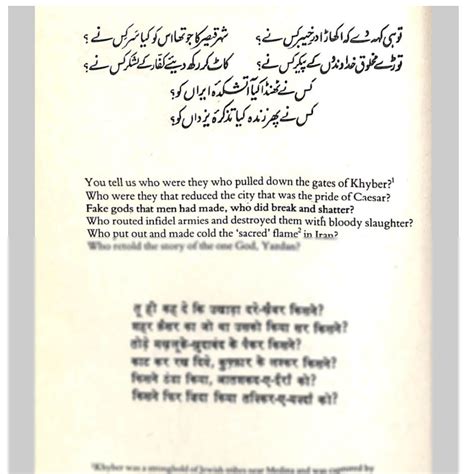 توہی کہدے کہ اکھاڑا درِ خیبر کس نے؟ شہر قیصر کا جو تھا اس کو کیا سر کس نے؟
توڑے مخلوق خداوندوں کے پیکر کس نے؟ کاٹ کر رکھ دیئے کفّار کے لشکر کس نے؟
کس نے ٹھنڈا کیا آتشکدۂ ایراں کو؟
کس نے پھر زندہ کیا تذکرۂ یزداں کو؟
You tell us who were they who pulled down the gates of Khyber?¹
Who were they that reduced the city that was the pride of Caesar?
Fake gods that men had made, who did break and shatter?
Who routed infidel armies and destroyed them with bloody slaughter?
Who put out and made cold the ‘sacred’ flame² in Iran?
Who retold the story of the one God, Yazdan?
तू ही कह दे कि उखाड़ा दरे-ख़ैबर किसने?
शहर क़ैसर का जो था उसको किया सर किसने?
तोड़े मख़लूक़े-ख़ुदावंद के पैकर किसने?
काट कर रख दिये, कुफ़्फ़ार के लश्कर किसने?
किसने ठंडा किया, आतशकद-ए-ईराँ को?
किसने फिर ज़िंदा किया तज़्किर-ए-यज़्दाँ को?
¹Khyber was a stronghold of Jewish tribes near Medina and was captured by